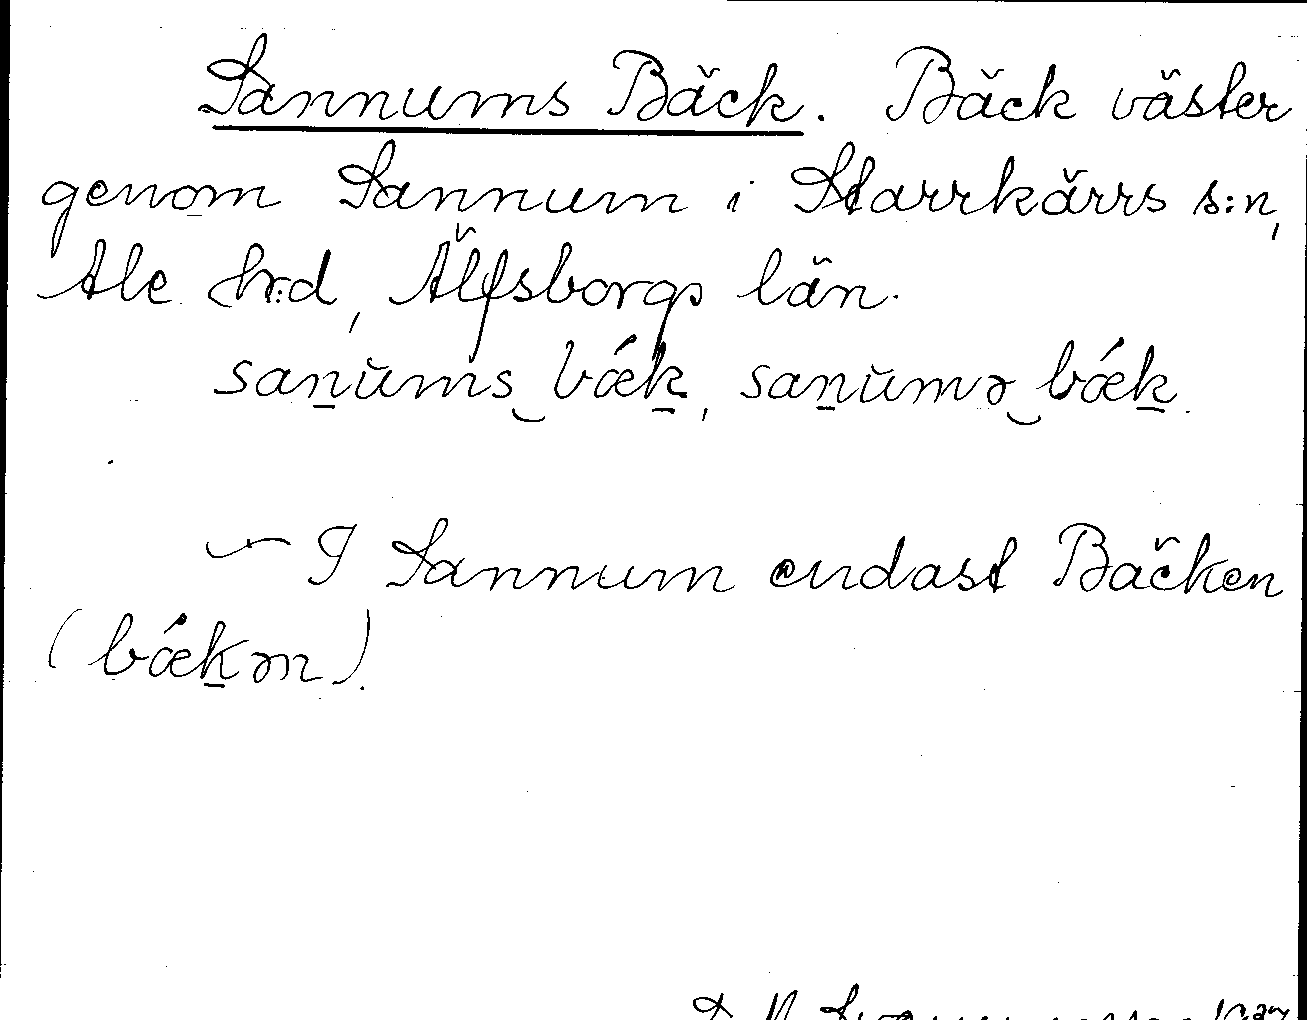 Sannums Bäck. Bäck väster
genom Sannum i Starrkärrs s:n,
Ale h:d, Älfsborgs län.
san̠ŭms‿bǽk̠, san̠ŭmə‿bǽk̠.
— I Sannum endast Bäcken
(bǽk̠ən).